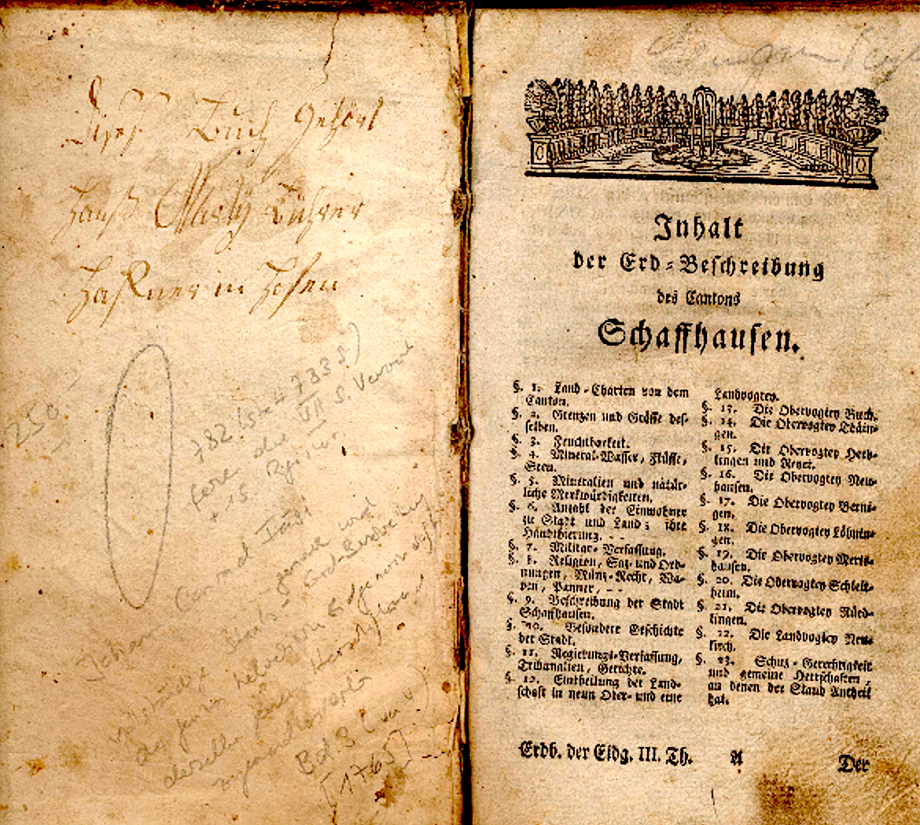 Dises Buch Gehört
Hanß Bührer
Haffner in Hofen
250 -
782 (statt 7335)
+ 15 Register
Johann Conrad Fäsi
genaue und
Erdbeschreibung
der ganzen helvet. Eidgenossensch.
derselben gemeinen Herrschaften
zugewandten Orte
Bd. 3 (von 4)
[1765]
Inhalt
der Erd-Beschreibung
des Cantons
Schaffhausen.
§. 1. Land-Charten von dem
Canton.
§. 2. Grenzen und Grösse des-
selben.
§. 3. Fruchtbarkeit.
§. 4. Mineral-Wasser, Flüsse,
Seen.
§. 5. Mineralien und natür-
liche Merkwürdigkeiten.
§. 6. Anzahl der Einwohner
zu Stadt und Land; ihre
Handthierung. - -
§. 7. Militar-Verfassung.
§. 8. Religion, Saz- und Ord-
nungen, Münz-Recht, Wa-
pen, Panner, - -
§. 9. Beschreibung der Stadt
Schaffhausen.
§. 10. Besondere Geschichte
der Stadt.
§. 11. Regierungs-Verfassung,
Tribunalien, Gerichte.
§. 12. Eintheilung der Land-
schaft in neun Ober- und eine
Landvogtey.
§. 13. Die Obervogtey Buch.
§. 14. Die Obervogtey Thäin-
gen.
§. 15. Die Obervogtey Herb-
lingen und Reyet.
§. 16. Die Obervogtey Neu-
hausen.
§. 17. Die Obervogtey Berin-
gen.
§. 18. Die Obervogtey Löhnin-
gen.
§. 19. Die Obervogtey Meris-
hausen.
§. 20. Die Obervogtey Schleit-
heim.
§. 21. Die Obervogtey Rüed-
lingen.
§. 22. Die Landvogtey Neu-
kirch.
§. 23. Schuz-Gerechtigkeit
und gemeine Herrschaften,
an denen der Stand Antheil
hat.
Erdb. der Eidg. III. Th. A Der